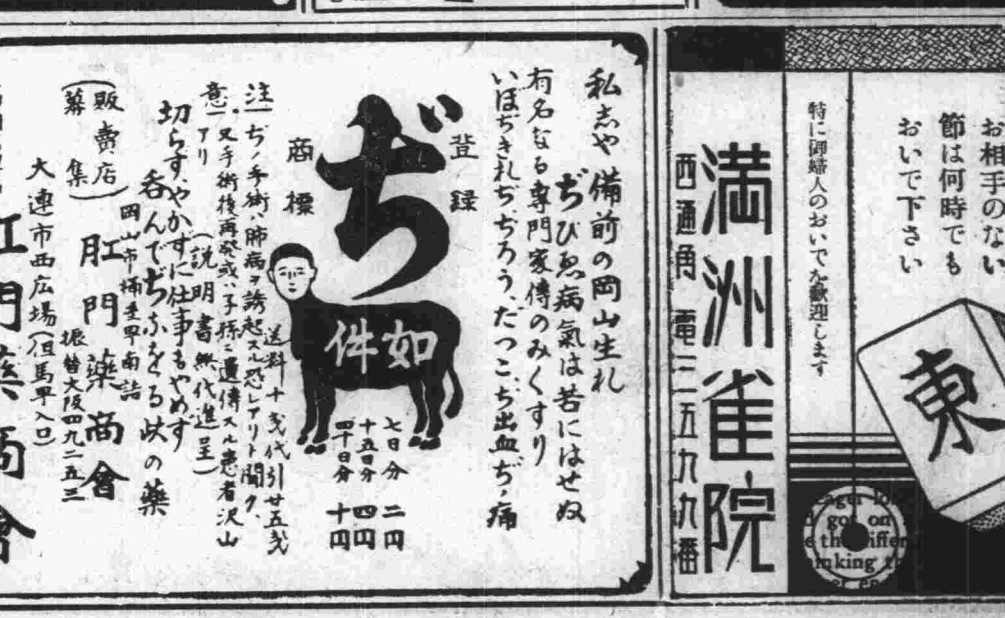 お相手のない
節は何時でも
おいで下さい
東
特に御婦人のおいでを歓迎します
満洲雀院
西通角 電二五九九番
got on
私しや備前の岡山生れ
ぢびゑ病氣は苦にはせぬ
有名なる専門家傳のみくすり
いぼぢきれぢぢろう、だつこ、ち出血、ぢ、痛
登録
ぢ
商標
如件
七日分 二円
十五日分 四円
四十日分 十円
送料十戔代引廿五戔
注意
ぢノ手術ハ肺病ヲ誘起スル恐レアリト聞ク
又手術後再発或ハ子孫ニ遺傳スル患者沢山
アリ
(説明書無代進呈)
切らすやかすに仕事もやめす
呑んでぢぶをる妙の薬
岡山市
肛門薬商會
振替大阪四九二五三
(販賣店募集)
大連市西広場(但馬町入口)
肛門薬商會